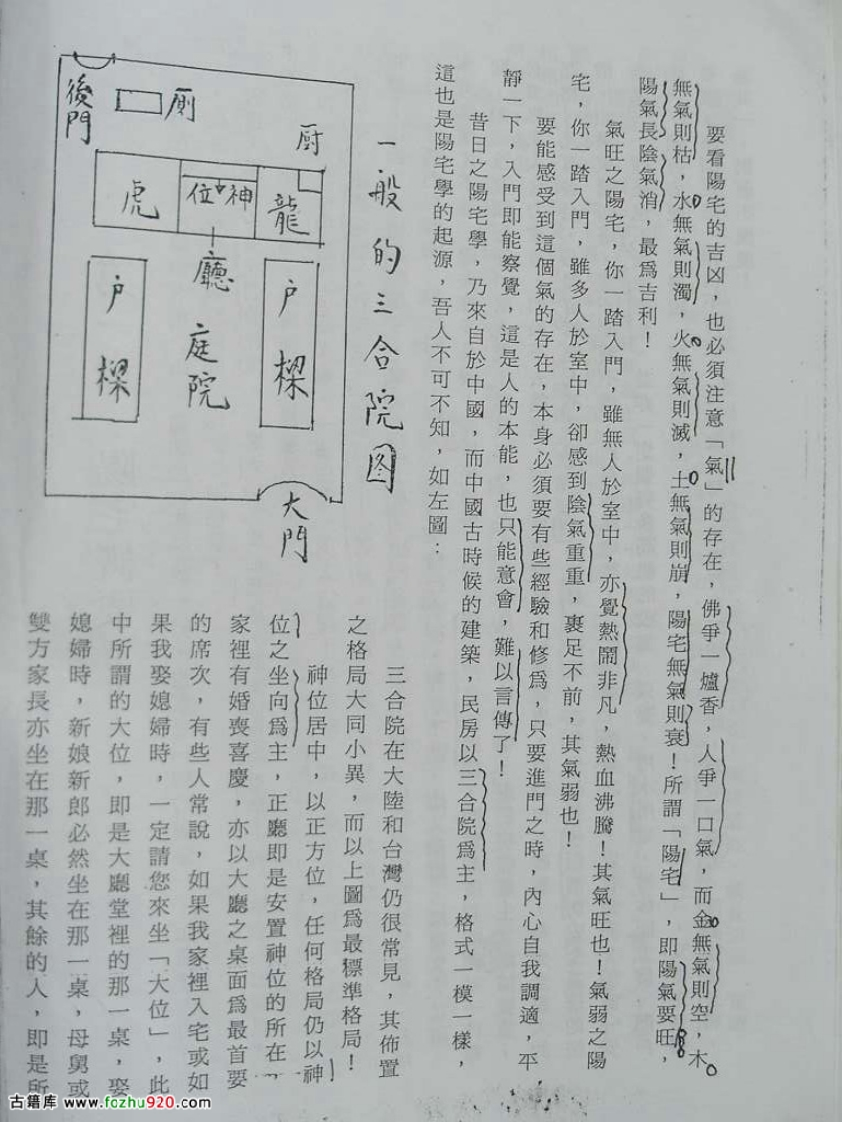 要看陽宅的吉凶，也必須注意「氣」的存在，佛爭一爐香，人爭一口氣，而金無氣則空，木
無氣則枯，水無氣則濁，火無氣則滅，土無氣則崩，陽宅無氣則衰！所謂「陽宅」，即陽氣要旺，
陽氣長陰氣消，最為吉利！
氣旺之陽宅，你一踏入門，雖無人於室中，亦覺熱鬧非凡，熱血沸騰！其氣旺也！氣弱之陽
宅，你一踏入門，雖多人於室中，卻感到陰氣重重，裹足不前，其氣弱也！
要能感受到這個氣的存在，本身必須要有些經驗和修為，只要進門之時，內心自我調適，平
靜一下，入門即能察覺，這是人的本能，也只能意會，難以言傳了！
昔日之陽宅學，乃來自於中國，而中國古時候的建築，民房以三合院為主，格式一模一樣，
這也是陽宅學的起源，吾人不可不知，如左圖：
一般的三合院图
後門
厠
厨
虎
神位
龍
廳
庭院
户樑
户樑
大門
三合院在大陸和台灣仍很常見，其佈置
之格局大同小異，而以上圖為最標準格局！
神位居中，以正方位，任何格局仍以神
位之坐向為主，正廳即是安置神位的所在，
家裡有婚喪喜慶，亦以大廳之桌面為最首要
的席次，有些人常說，如果我家裡入宅或如
果我娶媳婦時，一定請您來坐「大位」，此
中所謂的大位，即是大廳堂裡的那一桌，娶
媳婦時，新娘新郎必然坐在那一桌，母舅或
雙方家長亦坐在那一桌，其餘的人，即是所
古籍库 www.fozhu920.com